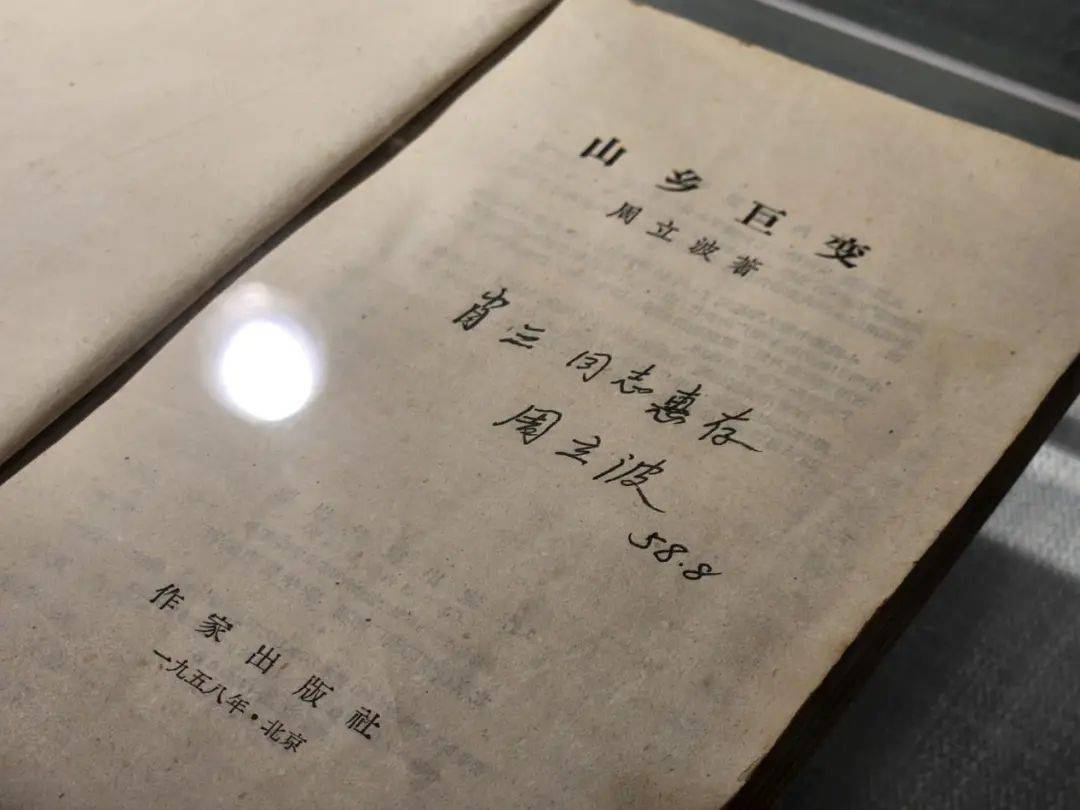 山乡巨变
周立波著
肖三同志惠存
周立波
58.8
作家出版社
一九五八年·北京